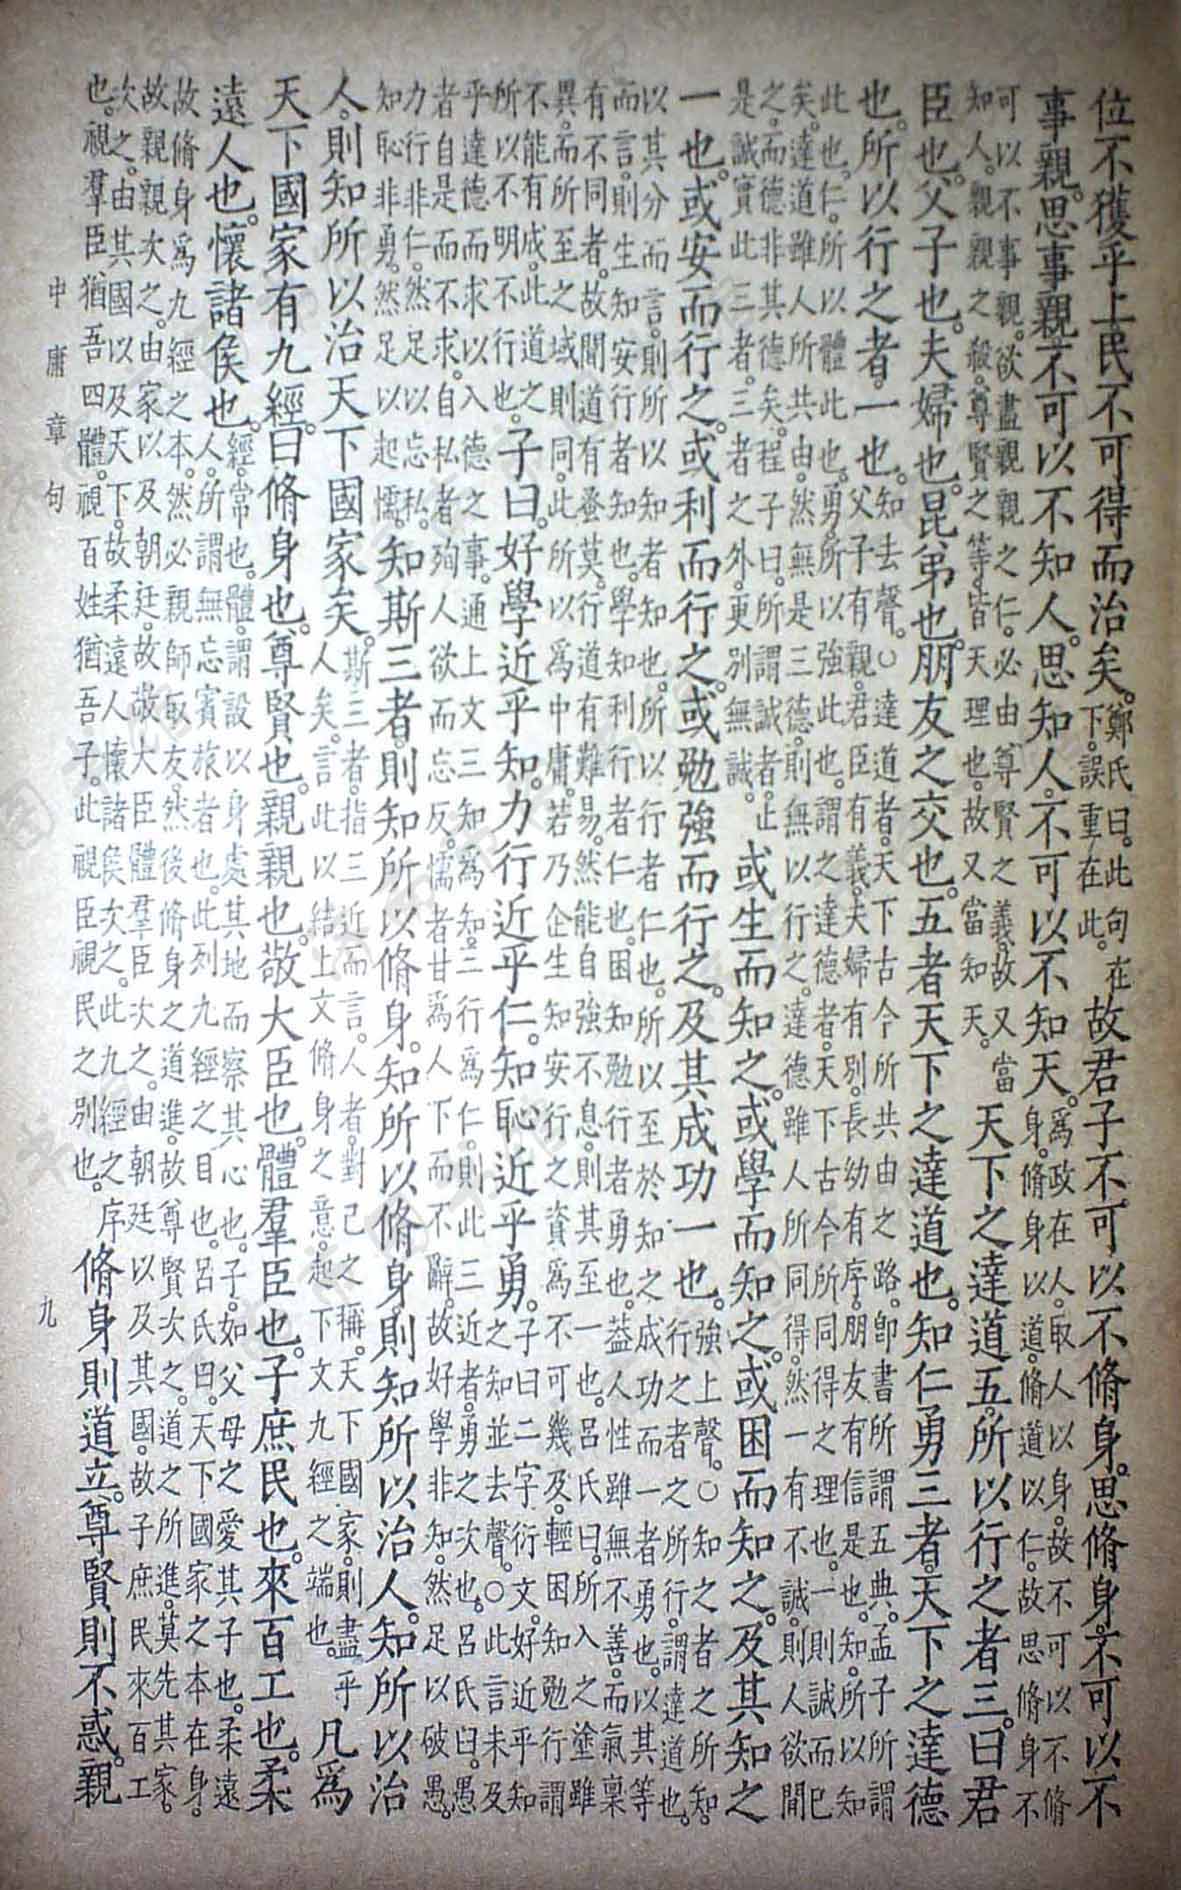 位不獲乎上民不可得而治矣。
鄭氏曰。此句在
下。誤重在此。
故君子不可以不脩身。思脩身。不可以不
事親。思事親。不可以不知人。思知人。不可以不知天。
爲政在人。取人以身。故不可以不脩
身。脩身以道。脩道以仁。故思脩身不
可以不事親。欲盡親親之仁。必由尊賢之義。故又當
知人。親親之殺。尊賢之等。皆天理也。故又當知天。
天下之達道五。所以行之者三。曰君
臣也。父子也。夫婦也。昆弟也。朋友之交也。五者天下之達道也。知仁勇三者。天下之達德
也。所以行之者一也。
知去聲。○達道者。天下古今所共由之路。卽書所謂五典。孟子所謂
父子有親。君臣有義。夫婦有別。長幼有序。朋友有信。是也。知。所以知
此也。仁。所以體此也。勇。所以強此也。謂之達德者。天下古今所同得之理也。一則誠而已
矣。達道雖人所共由。然無是三德。則無以行之。達德雖人所同得。然一有不誠。則人欲間
之。而德非其德矣。程子曰。所謂誠者。止
是誠實此三者。三者之外。更別無誠。
或生而知之。或學而知之。或困而知之。及其知之
一也。或安而行之。或利而行之。或勉強而行之。及其成功一也。
強上聲。○知之者之所知。
行之者之所行。謂達道也。
以其分而言。則所以知者知也。所以行者仁也。所以至於知之成功而一者勇也。以其等
而言。則生知安行者知也。學知利行者仁也。困知勉行者勇也。葢人性雖無不善。而氣稟
有不同者。故聞道有蚤莫。行道有難易。然能自強不息。則其至一也。呂氏曰。所入之塗雖
異。而所至之域則同。此所以爲中庸。若乃企生知安行之資爲不可幾及。輕困知勉行謂
不能有成。此道之
所以不明不行也。
子曰。好學近乎知。力行近乎仁。知恥近乎勇。
子曰二字衍文。好近乎知
之知並去聲。○此言未及
乎達德而求以入德之事。通上文三知爲知。三行爲仁。則此三近者。勇之次也。呂氏曰。愚
者自是而不求。自私者殉人欲而忘反。懦者甘爲人下而不辭。故好學非知。然足以破愚。
力行非仁。然足以忘私。
知恥非勇。然足以起懦。
知斯三者。則知所以脩身。知所以脩身。則知所以治人。知所以治
人。則知所以治天下國家矣。
斯三者。指三近而言。人者。對己之稱。天下國家。則盡乎
人矣。言此以結上文脩身之意。起下文九經之端也。
凡爲
天下國家有九經。曰脩身也。尊賢也。親親也。敬大臣也。體羣臣也。子庶民也。來百工也。柔
遠人也。懷諸侯也。
經。常也。體。謂設以身處其地而察其心也。子。如父母之愛其子也。柔遠
人。所謂無忘賓旅者也。此列九經之目也。呂氏曰。天下國家之本在身。
故脩身爲九經之本。然必親師取友。然後脩身之道進。故尊賢次之。道之所進。莫先其家。
故親親次之。由家以及朝廷。故敬大臣體羣臣次之。由朝廷以及其國。故子庶民來百工
次之。由其國以及天下。故柔遠人懷諸侯次之。此九經之序
也。視羣臣。猶吾四體。視百姓猶吾子。此視臣視民之別也。
脩身則道立。尊賢則不惑。親
中庸章句
九